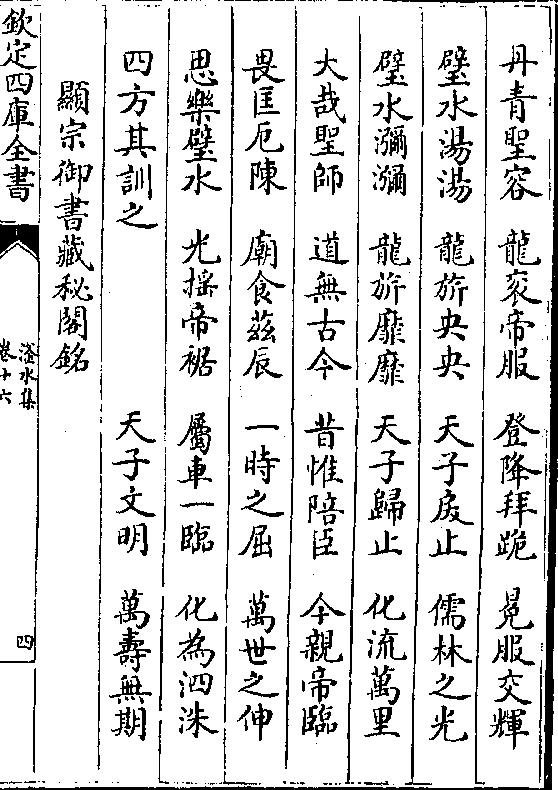 丹青聖容　龍衮帝服　登降拜跪　冕服交輝
璧水湯湯　龍旂央央　天子戾止　儒林之光
璧水瀰瀰　龍旂靡靡　天子歸止　化流萬里
大哉聖師　道無古今　昔惟陪臣　今親帝臨
畏匡厄陳　廟食茲辰　一時之屈　萬世之伸
思樂璧水　光摇帝裾　屬車一臨　化為泗洙
四方其訓之　天子文明　萬壽無期
顯宗御書藏秘閣銘
欽定四庫全書
滏水集
卷十六
四